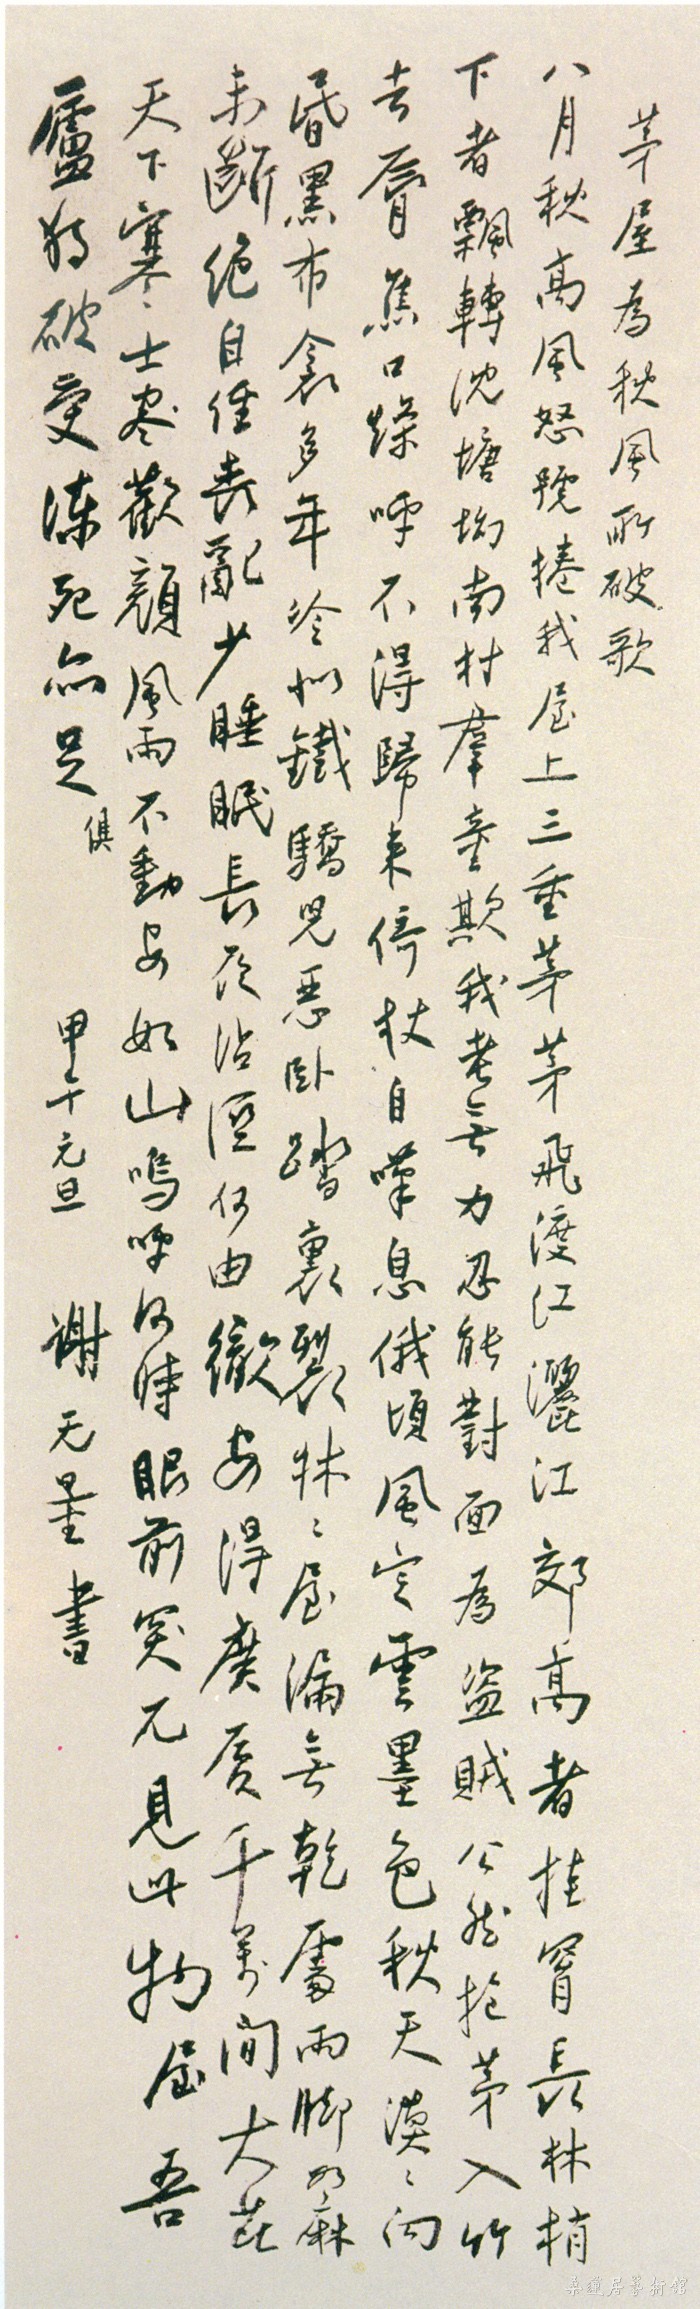 茅屋為秋風所破歌
八月秋高風怒號捲我屋上三重茅茅飛渡江灑江郊高者挂罥長林梢
下者飄轉沈塘坳南村羣童欺我老無力忍能對面為盜賊公然抱茅入竹
去脣焦口燥呼不得歸来倚杖自嘆息俄頃風定雲墨色秋天漠〻向
昏黑布衾多年冷似鐵驕兒惡臥踏裏裂牀〻屋漏無乾處雨脚如麻
未斷絕自經喪亂少睡眠長夜沾溼何由徹安得廣厦千萬間大芘
天下寒〻士盡歡顏風雨不動安如山嗚呼何時眼前突兀見此物屋吾
廬獨破受凍死亦足
俱
甲午元旦 謝无量書